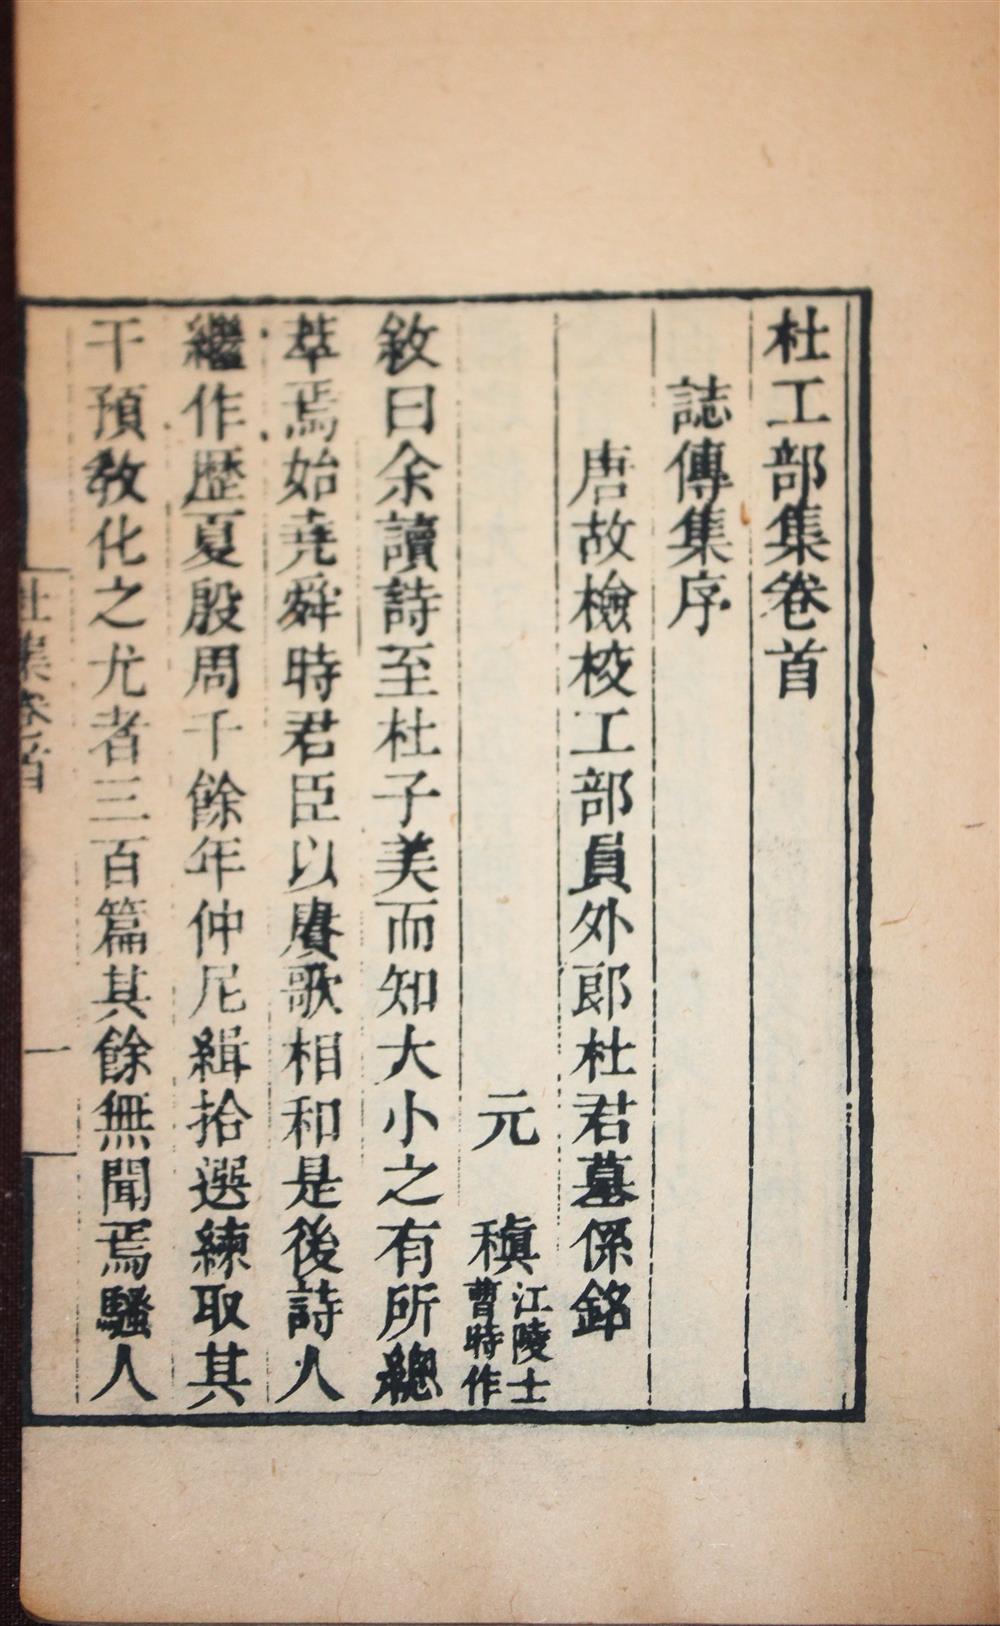 杜工部集卷首
誌傳集序
唐故檢校工部員外郎杜君墓係銘
元 稹 江陵士
曹時作
敘曰余讀詩至杜子美而知大小之有所總
萃焉始堯舜時君臣以賡歌相和是後詩人
繼作歷夏殷周千餘年仲尼緝拾選練取其
干預教化之尤者三百篇其餘無聞焉騷人
杜集卷首
一